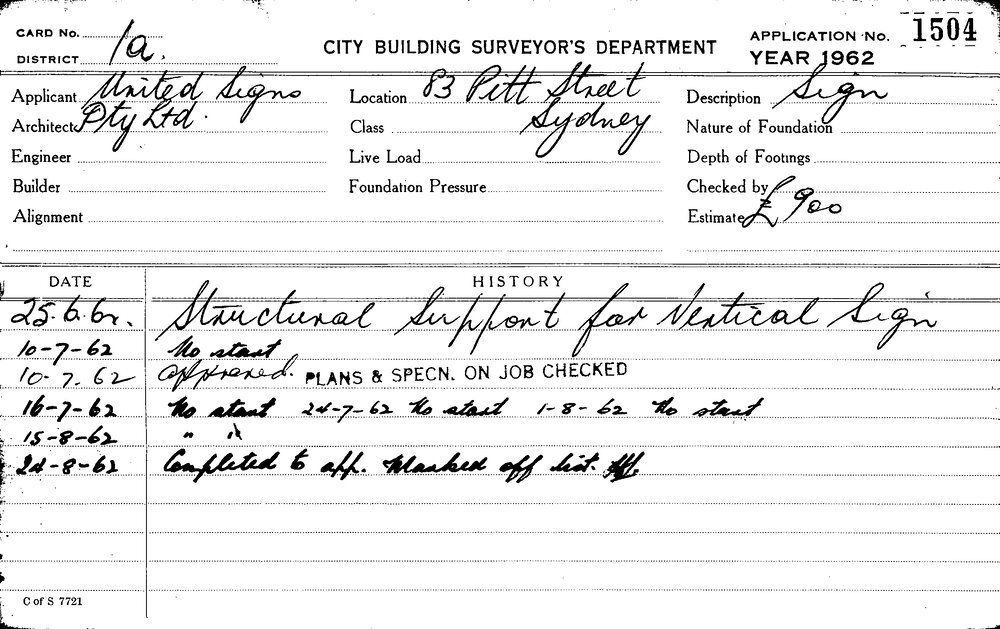 CARD No. 1a.
DISTRICT
CITY BUILDING SURVEYOR'S DEPARTMENT
APPLICATION No. 1504
YEAR 1962
Applicant United Signs
Location 83 Pitt Street
Description Sign
Architect Pty Ltd.
Class Sydney
Nature of Foundation
Engineer
Live Load
Depth of Footings
Builder
Foundation Pressure
Checked by
Alignment
Estimate £ 900
DATE HISTORY
25.6.62. Structural Support for Vertical Sign
10-7-62 No start
10.7.62 approved. PLANS & SPECN. ON JOB CHECKED
16-7-62 No start 24-7-62 No start 1-8-62 No start
15-8-62 " "
24-8-62 Completed to app. Marked off list.
C of S 7721